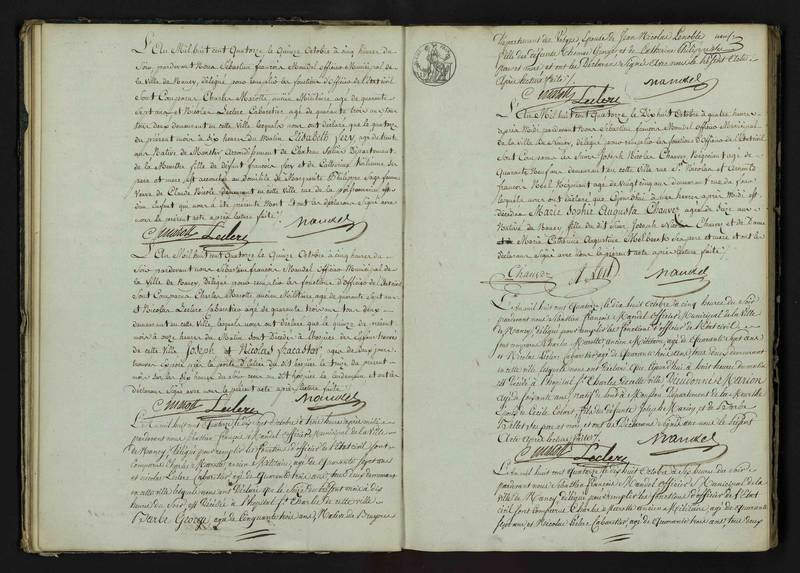 L'An Mil huit cent Quatorze le Quinze Octobre à cinq heures du
Soir, pardevant nous Sebastien françois Mandel Officier Municipal de
la Ville de Nancy, délégué pour remplir les fonctions d'Officier de l'Etat civil
Sont Comparus Charles Marotte, ancien Militaire agé de quarante
Sept ans et Nicolas Leclerc Cabaretier agé de quarante trois ans tous
deux demeurant en cette Ville lesquels nous ont déclaré que le quatorze
du présent mois à dix heures du Matin Elisabeth agée de trente
ans Native de Arrondissement de Château Salins Département
de la Meurthe fille de défunt françois et de Catherine ses
père et mere est accouchée au domicile de Marguerite Philippe Sage femme
Veuve de Claude Nicole en cette Ville rue de la
d'un Enfant qui nous a été présenté Mort et ont les déclarans Signé avec
nous le présent acte après lecture faite.
C. marotte Leclerc Mandel
L'An Mil huit cent Quatorze le Quinze Octobre à cinq heures du
Soir pardevant nous Sebastien françois Mandel Officier Municipal de
la Ville de Nancy, délégué pour remplir les fonctions d'Officier de l'Etat civil
Sont Comparus Charles Marotte ancien Militaire agé de quarante Sept ans
et Nicolas Leclerc Cabaretier agé de quarante trois ans tous deux
demeurant en cette Ville, lesquels nous ont déclaré que le quinze du présent
mois à onze heures du Matin Sont Décédé à l'hospice des Enfans trouvés
de cette Ville Joseph et Nicolas agés de Deux jours
trouvés Exposés près la porte d'Entrée du dit hospice le treize du présent
mois Sur les dix heures du Soir au dit hospice le lendemain et ont les
Déclarans Signé avec nous le présent acte après lecture faite.
C. marotte Leclerc Mandel
L'an mil huit cent Quatorze le Octobre à heures après midi
pardevant nous Sébastien françois Mandel Officier Municipal de la Ville
de Nancy, délégué pour remplir les fonctions d'officier de l'Etat civil, sont
comparus Charles Marotte, ancien Militaire, agé de quarante sept ans
et Nicolas Leclerc Cabaretier agé de quarante trois ans, tous deux demeurant
en cette ville lesquels nous ont déclaré que
heures du Soir est décédée à l'hopital St Charles de cette ville
Barbe George, agée de cinquante trois ans, Native de
Département des Vosges, épouse de Jean Nicolas Lenoble
fille des défunts Thomas George, et de Catherine
père et mere, et ont les Déclarans Signé avec nous le présent Acte
Après lecture faite.
C. marotte Leclerc Mandel
L'An Mil huit cent Quatorze, le Dix huit Octobre à quatre heures
après Midi pardevant nous Sébastien françois Mandel Officier Municipal
de la Ville de Nancy, délégué pour remplir les fonctions d'Officier de l'Etat civil
Sont Comparus les Sieurs Joseph Nicolas Chauvez Négociant agé de
Quarante ans, demeurant en cette Ville rue St. Nicolas et
françois Négociant agé de vingt cinq ans demeurant rue
lesquels nous ont déclaré que Aujourd'hui à une heure après Midi est
décédée Marie Sophie Augusta Chauvez agée de ans
Native de Nancy, fille du dit Sieur Joseph Nicolas Chauvez et de Dame
Marie Catherine Augustine ses père et mere et ont les
déclarans Signé avec nous le présent acte après lecture faite.
Chauvez Mandel
L'an mil huit cent Quatorze, le dix huit Octobre à cinq heures du Soir
pardevant nous Sébastien françois Mandel Officier Municipal de la Ville
de Nancy, délégué pour remplir les fonctions d'officier de l'Etat civil
sont comparus Charles Marotte ancien Militaire agé de quarante sept ans
et Nicolas Leclerc Cabaretier agé de quarante trois ans, tous deux demeurant
en cette ville lesquels nous ont déclaré que Aujourd'hui à heures
est Décédé à l'hopital St Charles de cette ville Dieudonné Marion
agé de soixante ans, natif de Pont à Mousson, Département de la Meurthe
Époux de Cécile fils des défunts Joseph Marion, et de Barbe
ses père et mere, et ont les Déclarans Signé avec nous le présent
Acte Après lecture faite.
C. marotte Leclerc Mandel
L'an mil huit cent Quatorze le dix huit Octobre à six heures du Soir
pardevant nous Sébastien François Mandel Officier Municipal de la
ville de Nancy, délégué pour remplir les fonctions d'officier de l'Etat
civil, sont comparus Charles Marotte ancien Militaire agé de quarante
sept ans, et Nicolas Leclerc Cabaretier, agé de quarante trois ans, tous deux